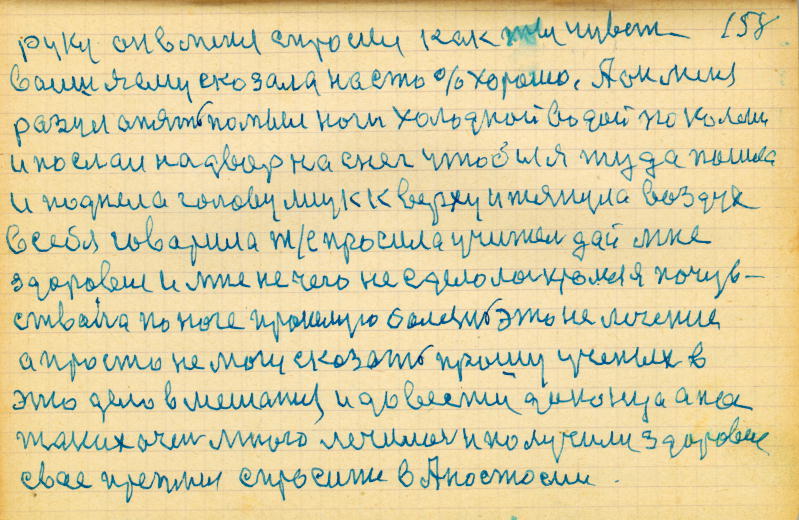 руку он вмене спросеи как ты чувст 158
ваиш я ему сказала на сто % хорошо, А он меня
разул опять помыеи ноги холодной водой по колени
и послаи на двор на снег чтоб я туда пошла
и поднела голову и рук к верху и тянула воздух
в себя говарила т/е просила учител дай мне
здоровеи и мне не чего не сделолок кроме я почув-
ствавла по ноге прошлую болезнь это не лечение
а просто не могу сказать прошу ученых в
это дело вмешатся и довести до конца а нас
таких очен много лечимся и получили здоровее
свае прежнеи спросите в Апостоси .